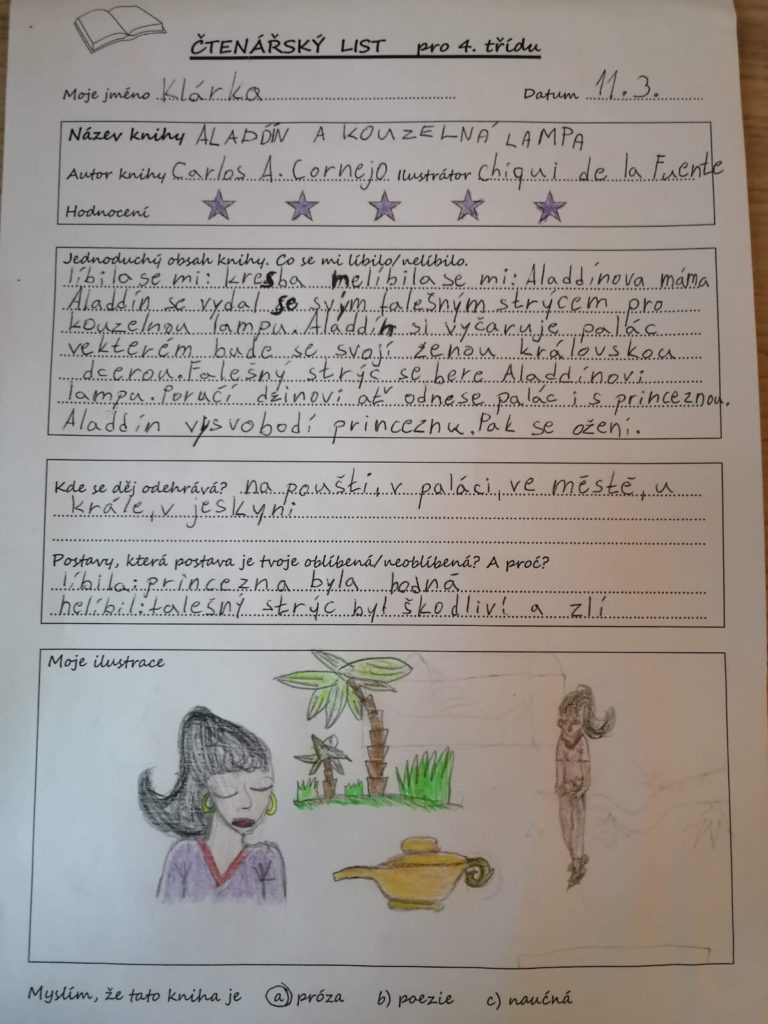 ČTENÁŘSKÝ LIST pro 4. třídu
Moje jméno Klárka Datum 11.3.
Název knihy ALADDÍN A KOUZELNÁ LAMPA
Autor knihy Carlos A. Cornejo Ilustrátor Chiqui de la Fuente
Hodnocení
Jednoduchý obsah knihy. Co se mi líbilo/nelíbilo.
líbila se mi: kresba nelíbila se mi: Aladdínova máma
Aladdín se vydal se svým falešným strýcem pro
kouzelnou lampu. Aladdín si vyčaruje palác
vekterém bude se svojí ženou královskou
dcerou. Falešný strýč se bere Aladdínovi
lampu. Poručí džinovi ať odnese palác i s princeznou.
Aladdín vysvobodí princeznu. Pak se ožení.
Kde se děj odehrává? na poušti, v paláci, ve městě, u
krále, v jeskyni
Postavy, která postava je tvoje oblíbená/neoblíbená? A proč?
líbila: princezna byla hodná
nelíbil: falešný strýc byl škodliví a zlí
Moje ilustrace
Myslím, že tato kniha je a) próza b) poezie c) naučná